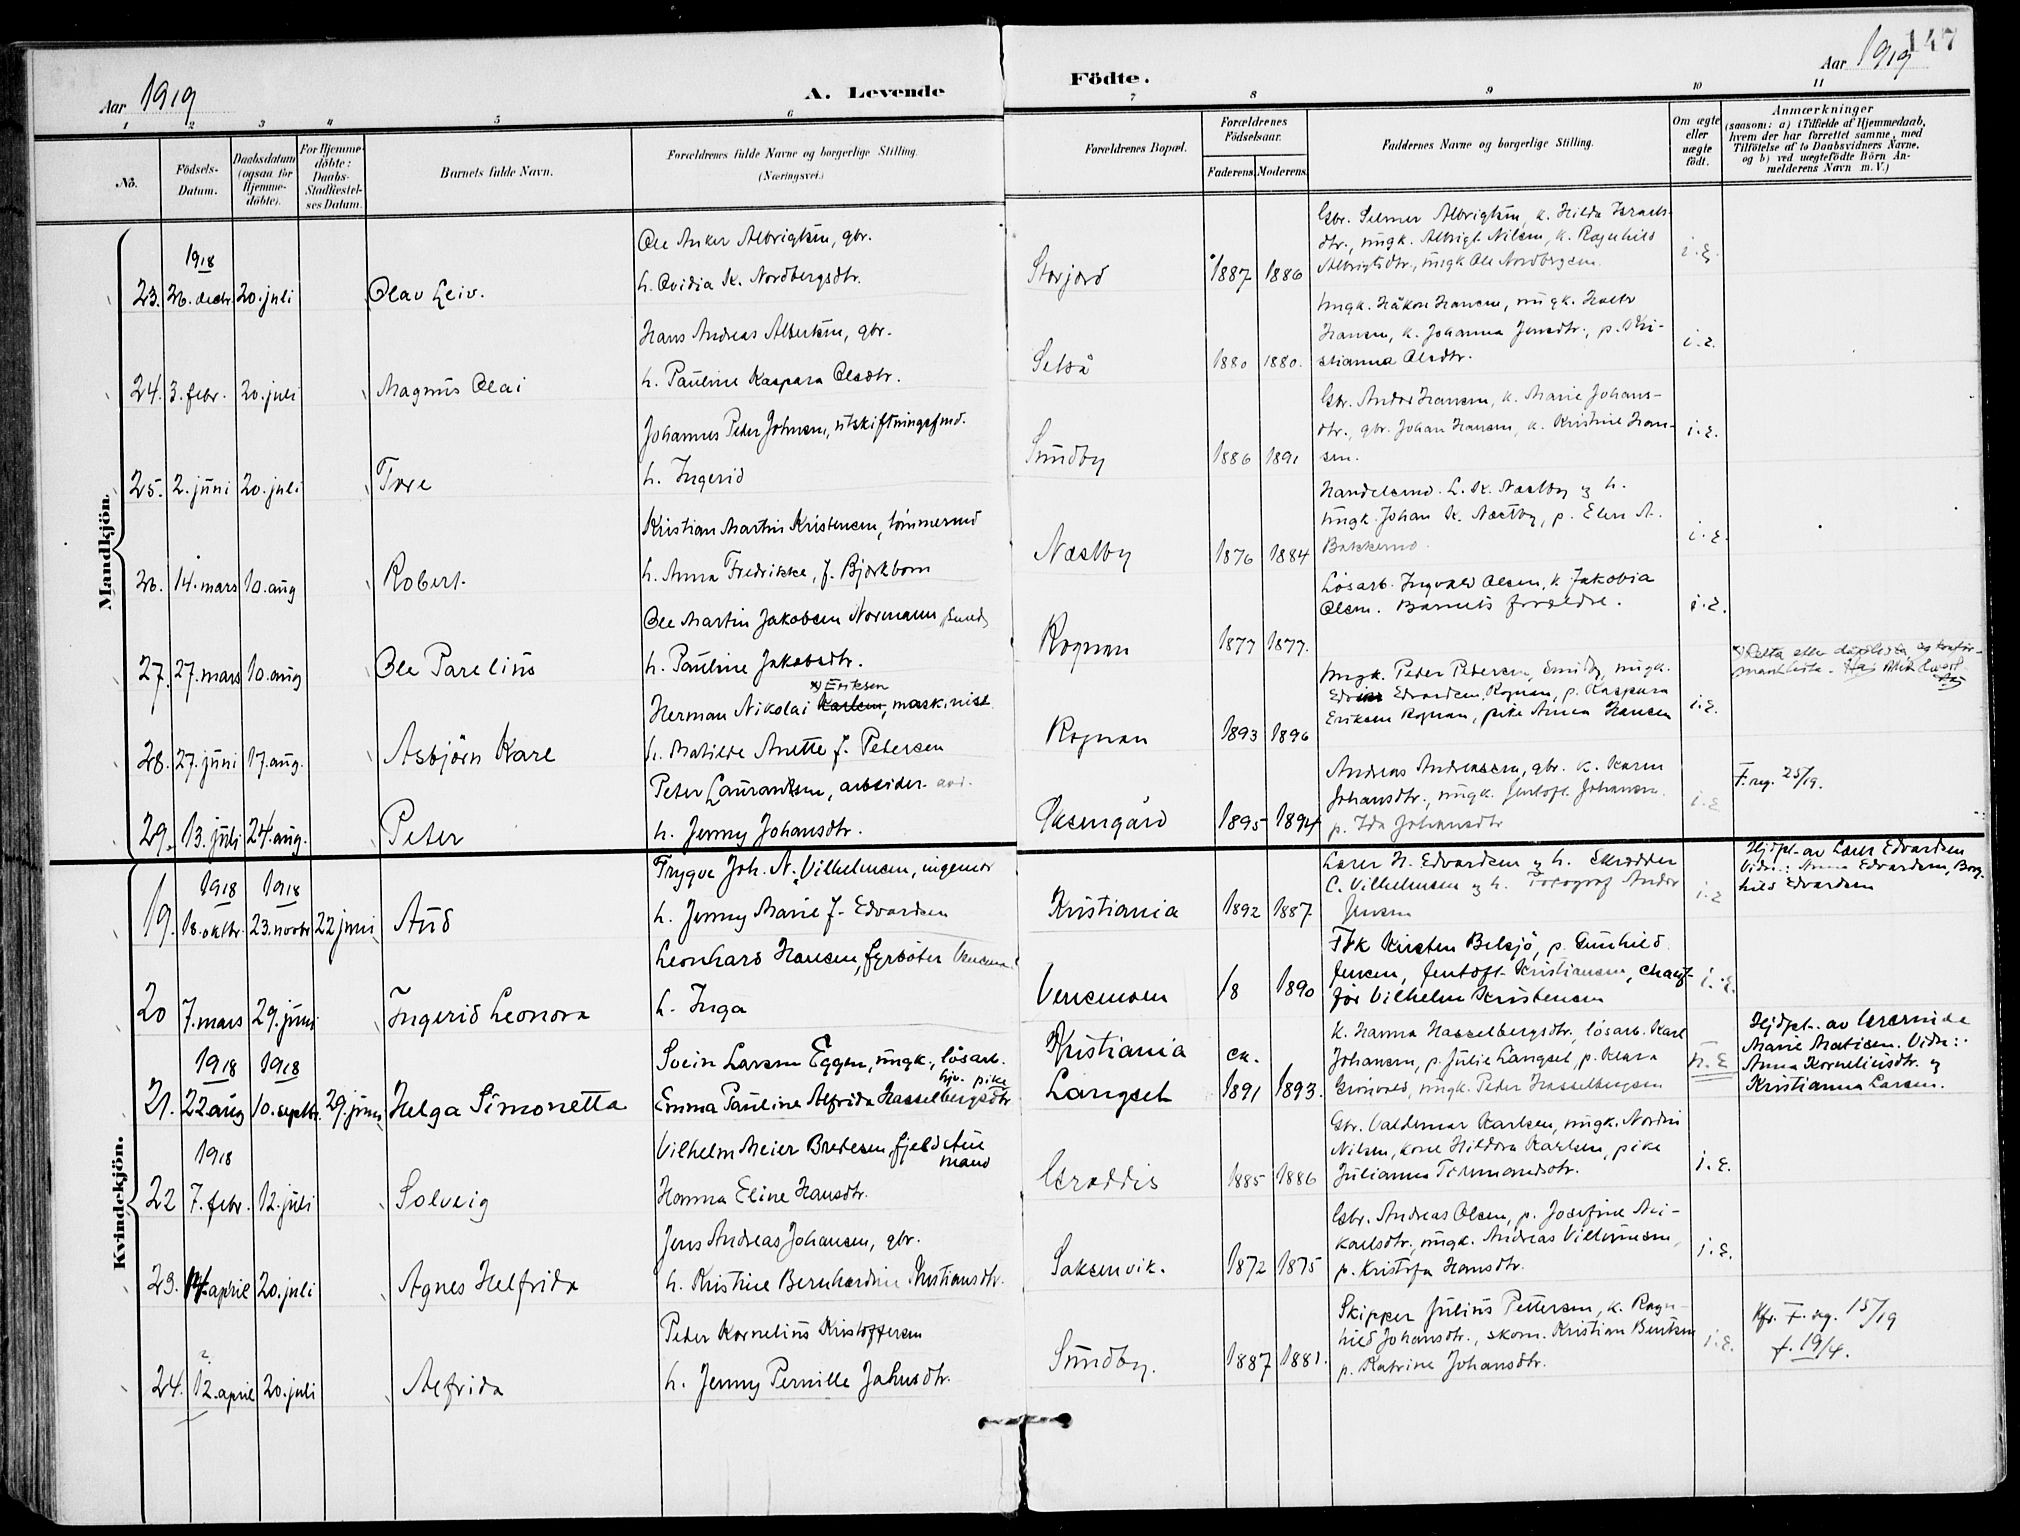 147
Aar 1919
A. Levende
Födte.
Aar 1919
1 2 3 4 5 6 7 8 9 10 11
No.
Födsels-Datum.
Daabsdatum (ogsaa for Hjemme-döbte).
For Hjemme-döbte: Daabs-Stadfæstel-ses Datum.
Barnets fulde Navn.
Forældrenes fulde Navne og borgerlige Stilling.
(Næringsvei.)
Forældrenes Bopæl.
Forældrenes Födselsaar.
Faderens. Moderens.
Faddernes Navne og borgerlige Stilling.
Om ægte eller uægte födt.
Anmærkninger
(saasom: a) i Tilfælde af Hjemmedaab,
hvem der har forrettet samme, med
Tilföielse af to Daabsvidners Navne,
og b) ved uægtefödte Börn An-
melderens Navn m. V.)
Mandkjön.
1918
23. 26. decbr. 20. juli
Olav Leiv.
Ole Anker Albrigtsen, gbr.
h. Ovidia K. Nordbergsdtr.
Storjord
1887 1886
Gbr. Selmer Albrigtsen, k. Hilda Israels-
dtr., ungk. Albrigt Nilsen, k. Ragnhild
Albrigtsdtr., ungk Ole Nordbergsen.
i. E.
24. 3. febr. 20. juli
Magnus Olai
Hans Andreas Albertsen, gbr.
h. Pauline Kaspara Olsdtr.
Setså
1880 1880.
Ungk. Håkon Hansen, ungk.
Hansen, k. Johanna Jensdtr., p. Kri-
stianna Olsdtr.
i. E.
25. 2. juni 20. juli
Tore
Johannes Peter Johnsen, utskiftningsfmd.
h. Ingerid
Sundby
1886 1891
Gbr. Andor Hansen, k. Marie Johans-
dtr., gbr. Johan Hansen, k. Kristine Han-
sen.
i. E.
26. 14. mars 10. aug
Robert.
Kristian Martin Kristensen, tømmermd
h. Anna Fredrikke, f. Bjørkbom
Næstby
1876 1884
Handelsmd. L. K. Næstby og h.
Ungk. Johan K. Næstby, p. Elen A.
Bakkemo.
i. E.
27. 27. mars 10. aug
Ole Parelius
Ole Martin Jakobsen Normann, smed
h. Pauline Jakobsdtr.
Rognan
1877 1877.
Løsarb. Ingvald Olsen, k. Jakobia
Olsen. Barnets forældre.
i. E.
28. 27. juni 17. aug.
Asbjörn Kare
*) Eriksen
Herman Nikolai Karlsen, maskinist
h. Matilde Anette f. Petersen
Rognan
1893 1896
Ungk. Peder Pedersen, Sundby, ungk.
Edvardsen, Rognan, p. Kaspara
Eriksen Rognan, pike Anna Hansen
i. E.
29. 13. juli 24. aug.
Peter
Peter Laurantsen, arbeider
h. Jenny Johansdtr.
Oksengård
1895 1894
Andreas Andreassen, gbr. k. Karen
Johansdtr., ungk. Jentoft Johansen.
p. Ida Johansdtr
i. E
F. reg. 25/19.
Kvindekjön.
1918 1918
19. 18. oktbr. 23. novbr 22 juni
Aud
Trygve Joh. N. Vilhelmsen, ingeniør
h. Jenny Marie f. Edvardsen
Kristiania
1892 1887.
Lærer H. Edvardsen og h. Skrædder
C. Vilhelmsen og h. Fotograf Andor
Jensen
i. E
Hjdpt. av Lærer Edvardsen
Vidn.: Anna Edvardsen, Borg-
hild Edvardsen
20 7. mars 29. juni
Ingerid Leonora
Leonhard Hansen, fyrbøter
h. Inga
Venemoen
18 1890
Frk Kirsten Belsjö, p. Gunhild
Jensen, Jentoft Kristiansen, chauf-
för Vilhelm Kristensen
i. E.
1918 1918
21. 22 aug 10. septbr. 29. juni
Helga Simonetta
Svein Larsen Eggen, ungk., lösarb.
hjv. pike
Emma Pauline Alfrida Hasselbergsdtr
Kristiania
Langset
ca.
1891 1893.
k. Hanna Hasselbergsdtr, lösarb. Karl
Johansen, p. Julie Langset, p. Klara
Grönvold, ungk. Peder Hasselbergsen
U. E
Hjdpt. av lærerinde
Marie Matisen. Vidn.:
Anna Korneliusdtr. og
Kristianna Larsen.
1918
22 7. febr. 12. juli
Solveig
Vilhelm Meier Bredesen, fjeldstue
mand
Hanna Eline Hansdtr.
Graddis
1885 1886
Gbr. Valdemar Karlsen, ungk. Nordin
Nilsen, kone Hildora Karlsen, pike
Julianna Tormandsdtr.
i. E.
23. 14. april 20. juli
Agnes Helfrida
Jens Andreas Johansen, gbr.
h. Kristine Bernhardine Kristiansdtr.
Saksenvik.
1872 1875
Gbr. Andreas Olsen, p. Josefine Ni-
karlsdtr., ungk. Andreas Villumsen,
p. Kristofa Hansdtr.
i. E.
24. 12. april 20. juli
Alfrida
Peder Kornelius Kristoffersen
h. Jenny Pernille Jahnsdtr.
Sundby.
1887 1881.
Skipper Julius Pettersen, k. Ragn-
hild Johansdtr., skom. Kristian Bentsen
p. Katrine Johansdtr.
i. E.
Kfr. F. reg. 15/19
f. 19/4.